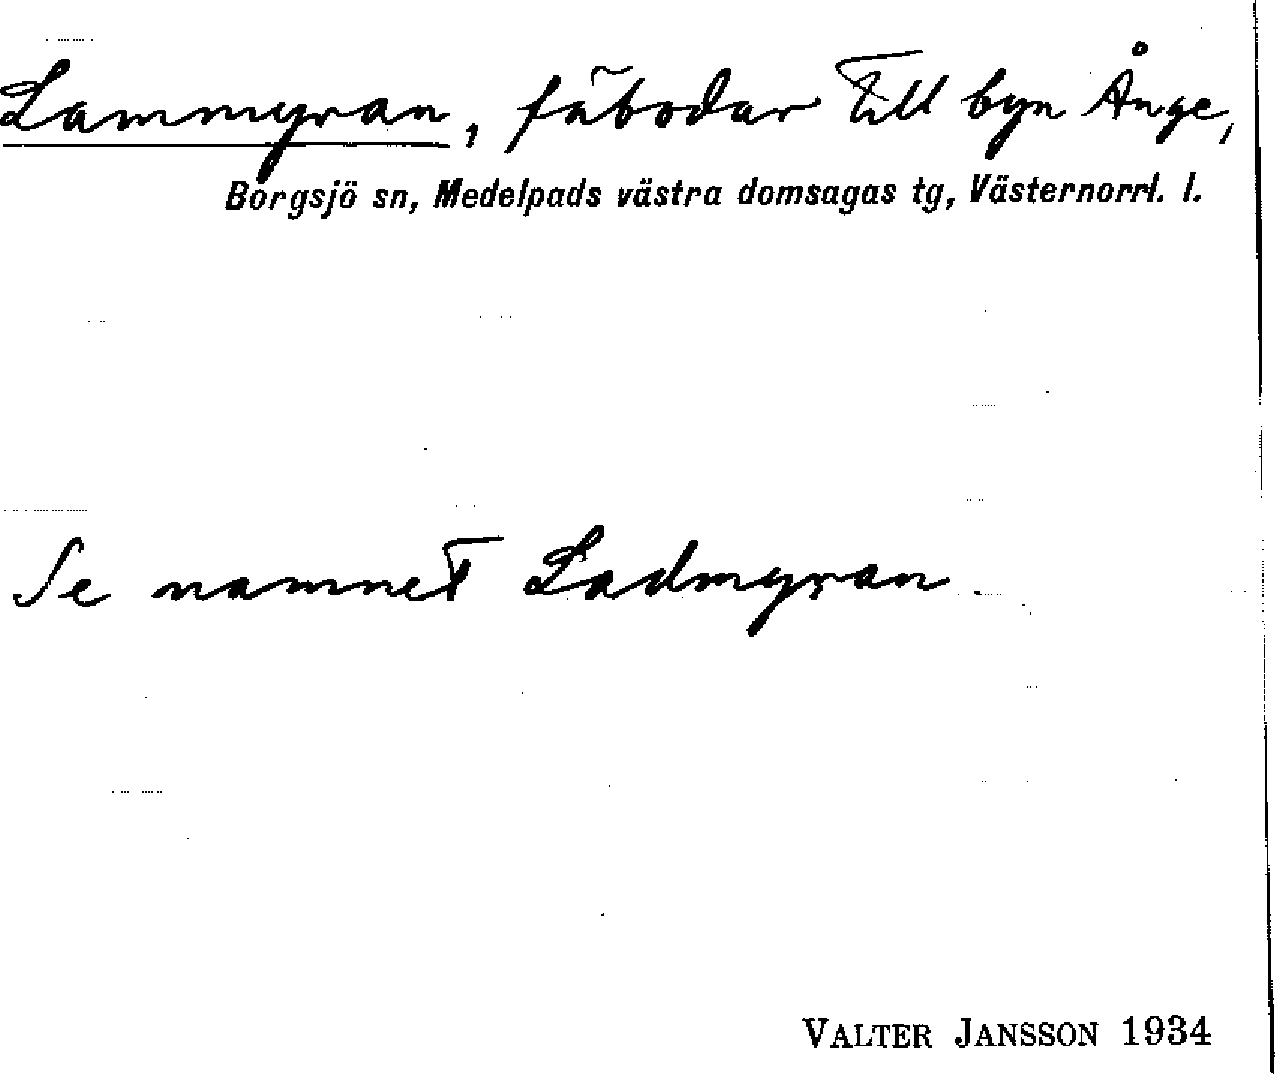 Lammyran, fäbodar till byn Ånge,
Borgsjö sn, Medelpads västra domsagas tg, Västernorrl. l.
Se namnet Ladmyran
VALTER JANSSON 1934